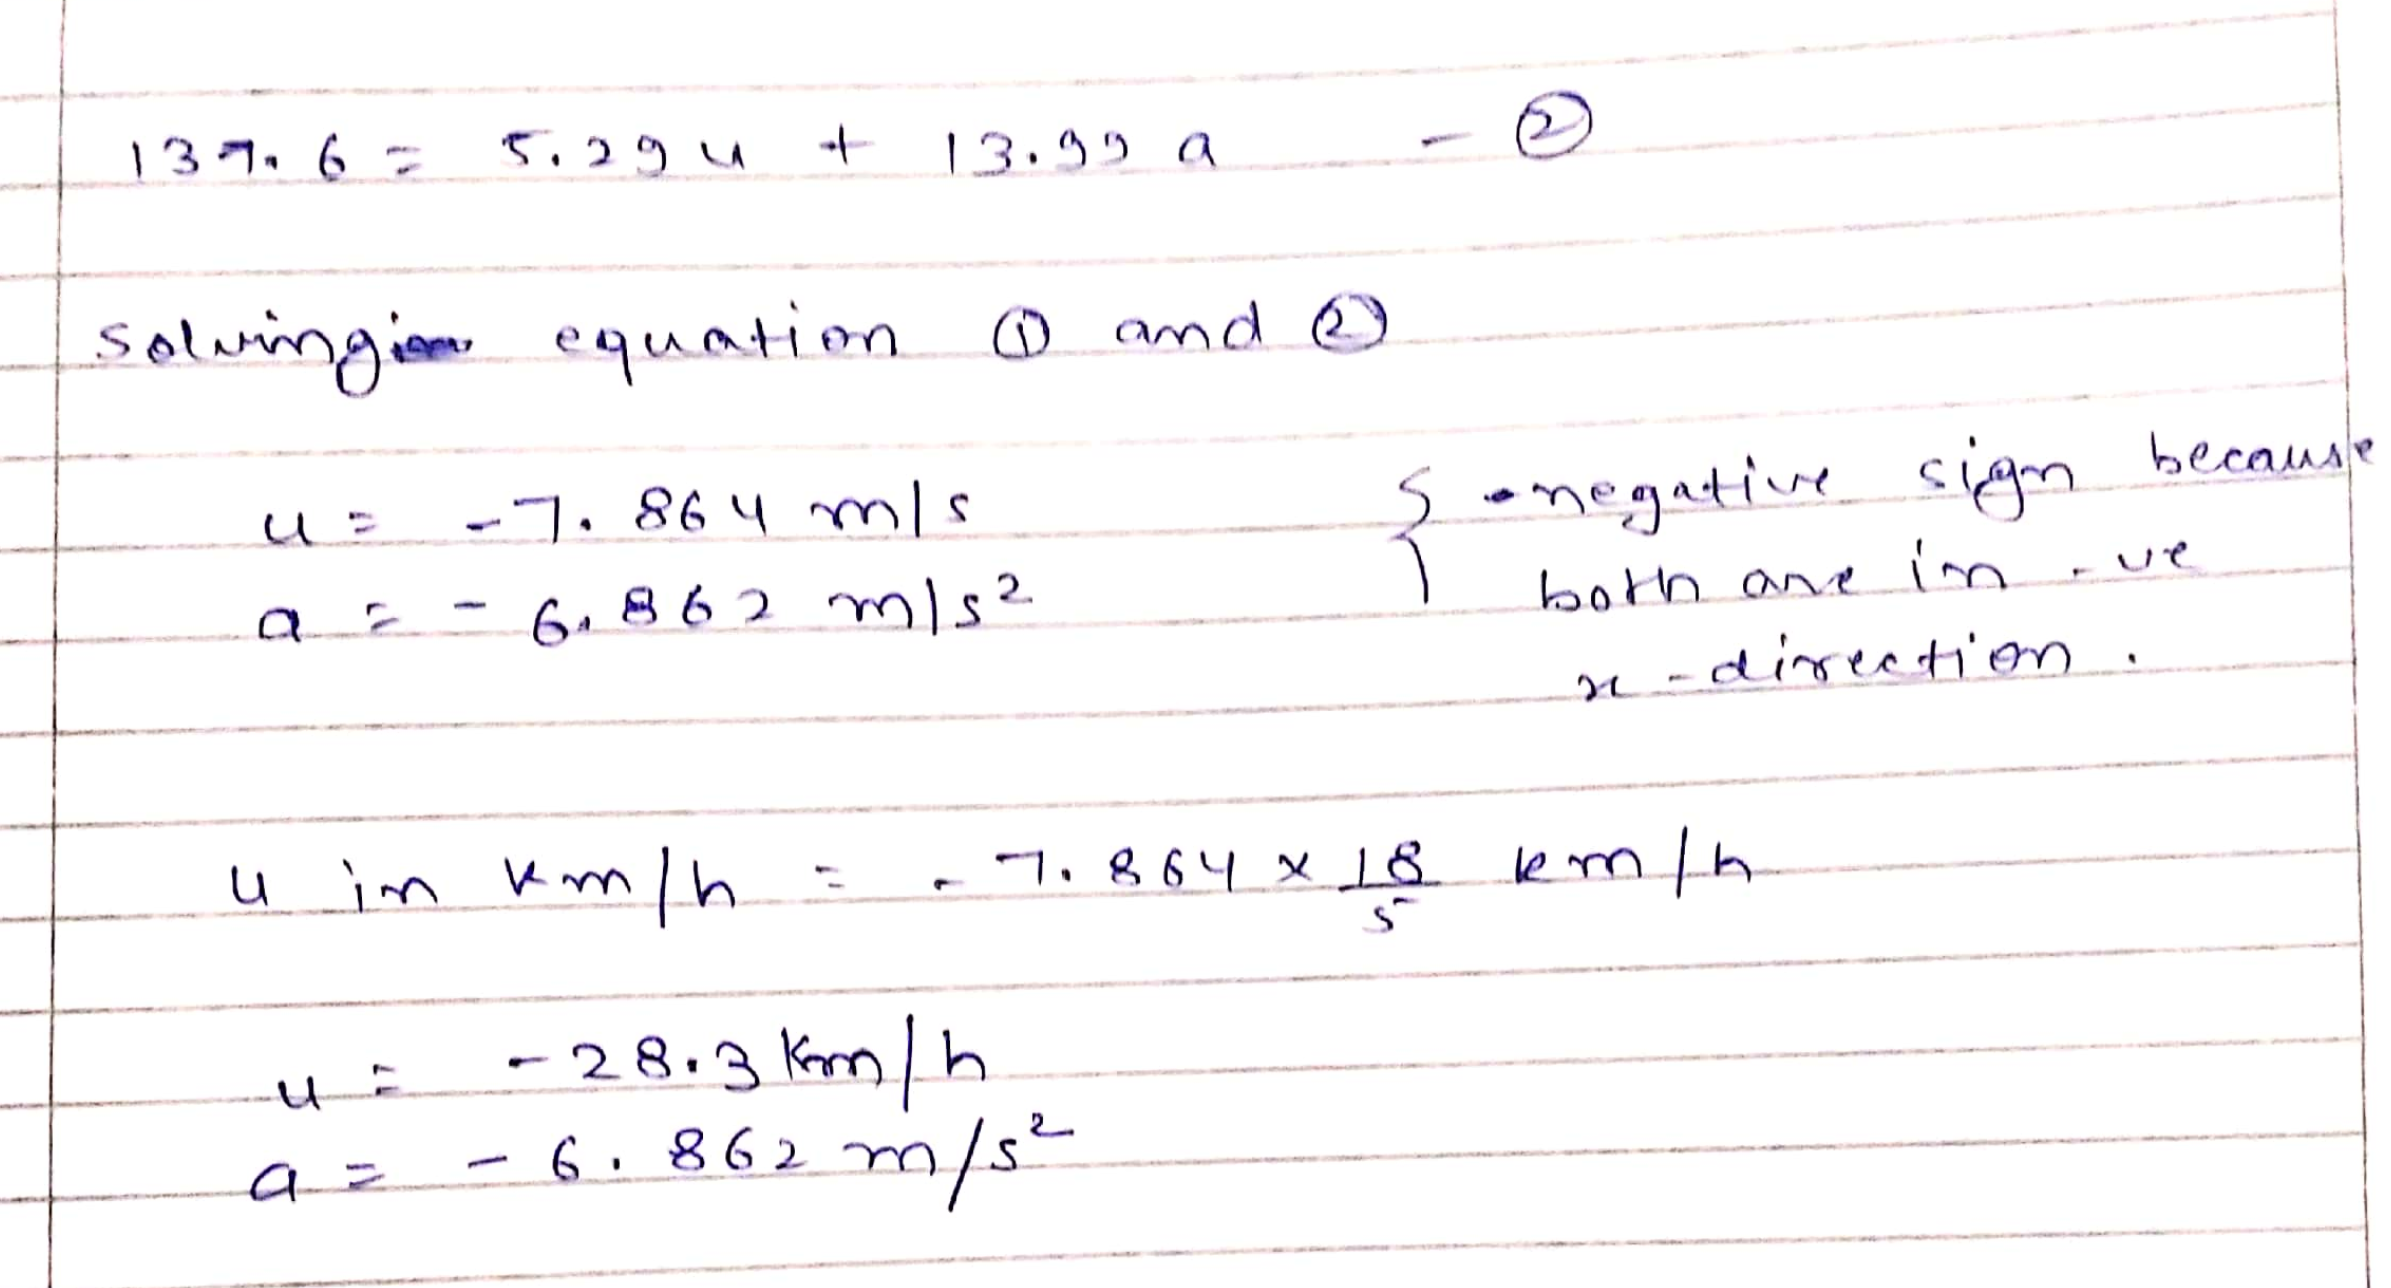 137.6 = 5.29 u + 13.99 a - ②
solving equation ① and ②
u = -7.864 m/s } -negative sign because
a = -6.862 m/s² both are in -ve
x-direction.
u in km/h = -7.864 × 18/5 km/h
u = -28.3 km/h
a = -6.862 m/s²